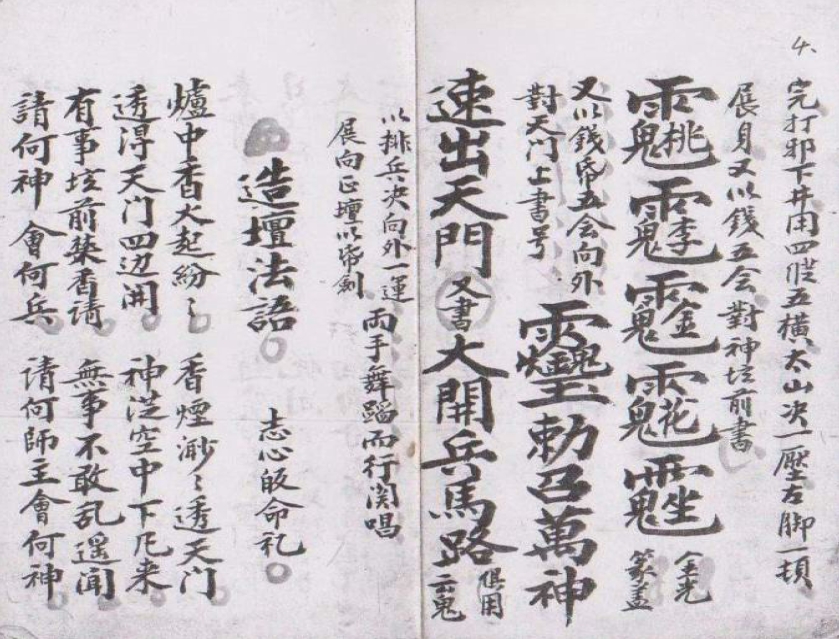 4.
完打邪下井用四縱五橫太山决一壓左脚一頓
展身又以錢五会對神坛前書
金光
篆盖
又以錢帋五会向外
對天门上書号
勅召萬神
速出天門 又書 大開兵馬路 俱用云鬼
以排兵决向外一運
展向正壇以帋劍
両手舞蹈而行関唱
造壇法語 志心皈命礼
爐中香火起紛〻 香煙渺〻透天门
透淂天门四边開 神從空中下凡来
有事坛前焚香请 無事不敢乱遥闻
請何神會何兵 请何師主會何神